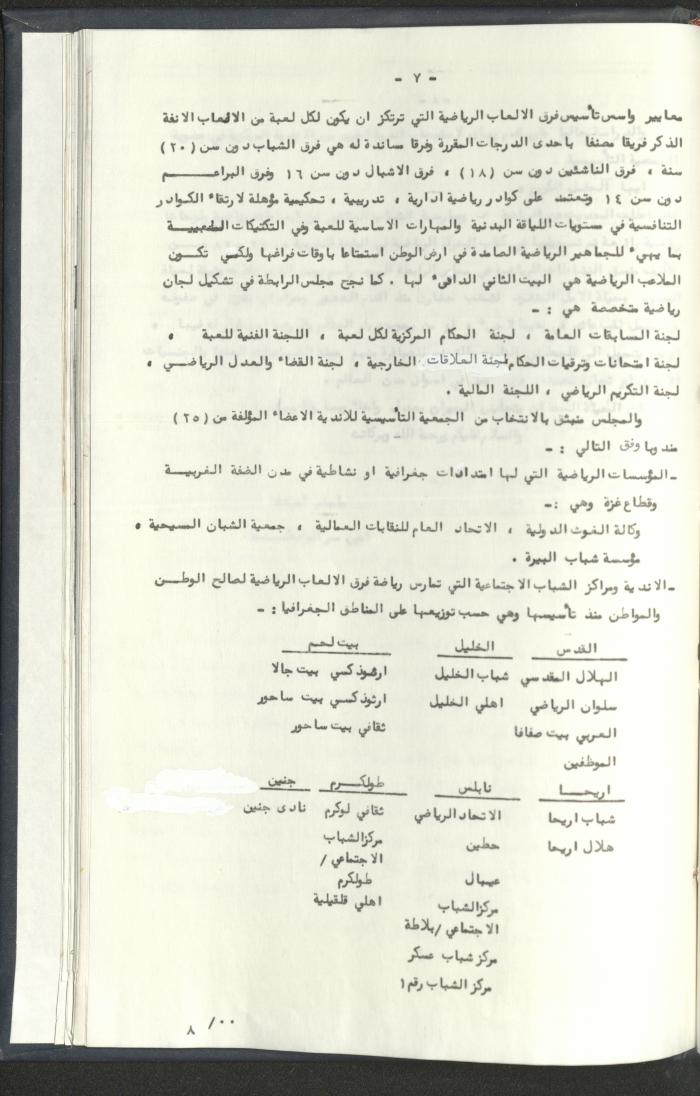 - ٧ -
معايير واسس تأسيس فرق الالعاب الرياضية التي ترتكز ان يكون لكل لعبة من الالعاب الانفة
الذكر فريقا مصنفا باحدى الدرجات المقررة وفرقا مساندة له هي فرق الشباب دون سن (٢٠)
سنة ، فرق الناشئين دون سن (١٨) ، فرق الاشبال دون سن ١٦ وفرق البراعــــم
دون سن ١٤ وتعتمد على كوادر رياضية ادارية ، تدريبية ، تحكيمية مؤهلة لارتقاء الكوادر
التنافسية في مستويات اللياقة البدنية والمهارات الاساسية للعبة وفي التكتيكات الملعبيــة
بما يهيء للجماهير الرياضية الصامدة في ارض الوطن استمتاعا باوقات فراغها ولكي تكــون
الملاعب الرياضية هي البيت الثاني الدافىء لها . كما نجح مجلس الرابطة في تشكيل لجان
رياضية متخصصة هي : -
لجنة المسابقات العامة ، لجنة الحكام المركزية لكل لعبة ، اللجنة الفنية للعبة ،
لجنة امتحانات وترقيات الحكام لجنة العلاقات الخارجية ، لجنة القضاء والعدل الرياضــي ،
لجنة التكريم الرياضي ، اللجنة المالية .
والمجلس منبثق بالانتخاب من الجمعية التأسيسية للاندية الاعضاء المؤلفة من (٢٥)
مندوبا وفق التالي : -
- المؤسسات الرياضية التي لها امتدادات جغرافية او نشاطية في مدن الضفة الغربيــة
وقطاع غزة وهي :-
وكالة الغوث الدولية ، الاتحاد العام للنقابات العمالية ، جمعية الشبان المسيحية ،
مؤسسة شباب البيرة .
- الاندية ومراكز الشباب الاجتماعية التي تمارس رياضة فرق الالعاب الرياضية لصالح الوطــن
والمواطن منذ تأسيسها وهي حسب توزيعها على المناطق الجغرافيا : -
القدس الخليل بيت لحم
الهلال المقدسي شباب الخليل ارثوذكسي بيت جالا
سلوان الرياضي اهلي الخليل ارثوذكسي بيت ساحور
العربي بيت صفافا ثقافي بيت ساحور
الموظفين
اريحــا نابلس طولكــرم جنين
شباب اريحا الاتحاد الرياضي ثقافي لوكرم نادى جنين
هلال اريحا حطين مركز الشباب
الاجتماعي /
عيبال طولكرم
مركز الشباب اهلي قلقيلية
الاجتماعي / بلاطة
مركز شباب عسكر
مركز الشباب رقم ١
٨ /٠٠